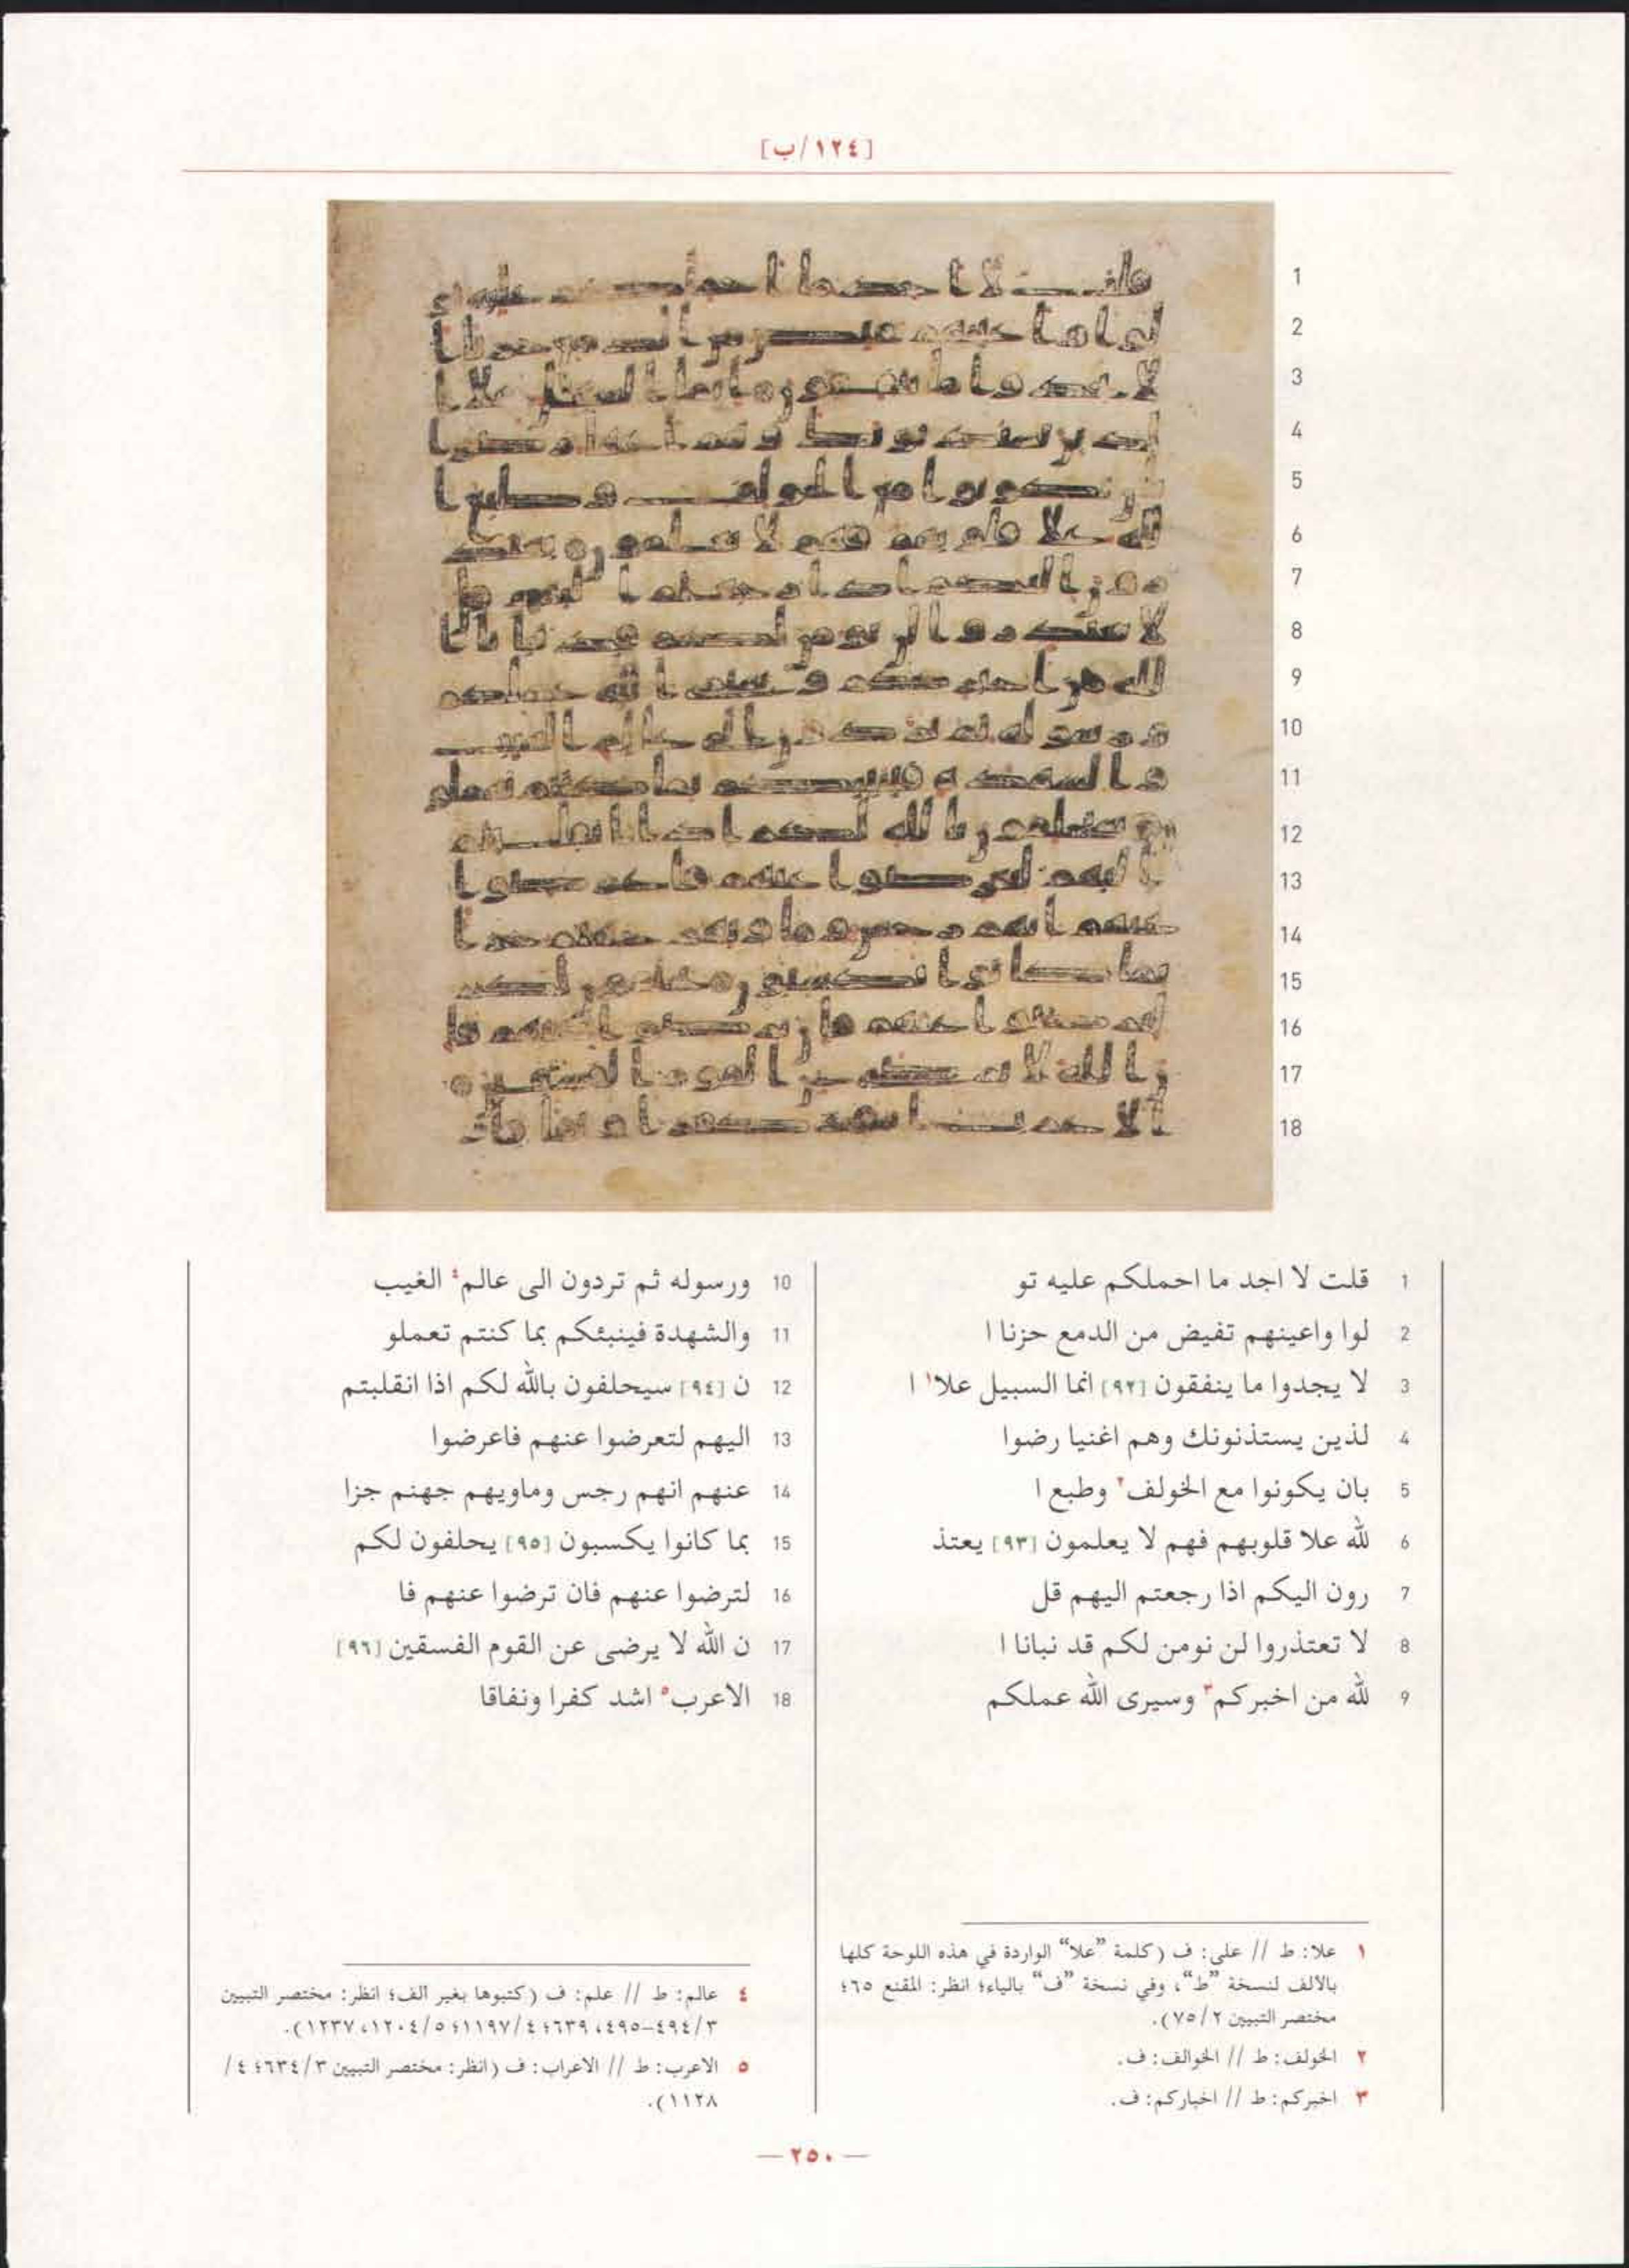 [١٢٤/ب]
1 قلت لا اجد ما احملكم عليه تو
2 لوا واعينهم تفيض من الدمع حزنا ا
3 لا يجدوا ما ينفقون [٩٢] انما السبيل علا١ ا
4 لذين يستذنونك وهم اغنيا رضوا
5 بان يكونوا مع الخولف٢ وطبع ا
6 لله علا قلوبهم فهم لا يعلمون [٩٣] يعتذ
7 رون اليكم اذا رجعتم اليهم قل
8 لا تعتذروا لن نومن لكم قد نبانا ا
9 لله من اخبركم٣ وسيرى الله عملكم
10 ورسوله ثم تردون الى عالم٤ الغيب
11 والشهدة فينبئكم بما كنتم تعملو
12 ن [٩٤] سيحلفون بالله لكم اذا انقلبتم
13 اليهم لتعرضوا عنهم فاعرضوا
14 عنهم انهم رجس وماويهم جهنم جزا
15 بما كانوا يكسبون [٩٥] يحلفون لكم
16 لترضوا عنهم فان ترضوا عنهم فا
17 ن الله لا يرضى عن القوم الفسقين [٩٦]
18 الاعرب٥ اشد كفرا ونفاقا
١ علا: ط // على: ف (كلمة "علا" الواردة في هذه اللوحة كلها
بالالف لنسخة "ط"، وفي نسخة "ف" بالياء؛ انظر: المقنع ٦٥؛
مختصر التبيين ٧٥/٢).
٢ الخولف: ط // الخوالف: ف.
٣ اخبركم: ط // اخباركم: ف.
٤ عالم: ط // علم: ف (كتبوها بغير الف؛ انظر: مختصر التبيين
٤٩٤/٣-٤٩٥، ٦٣٩؛ ١١٩٧/٤؛ ١٢٠٤/٥، ١٢٣٧).
٥ الاعرب: ط // الاعراب: ف (انظر: مختصر التبيين ٦٣٤/٣؛ ٤/
١١٢٨).
— ٢٥٠ —